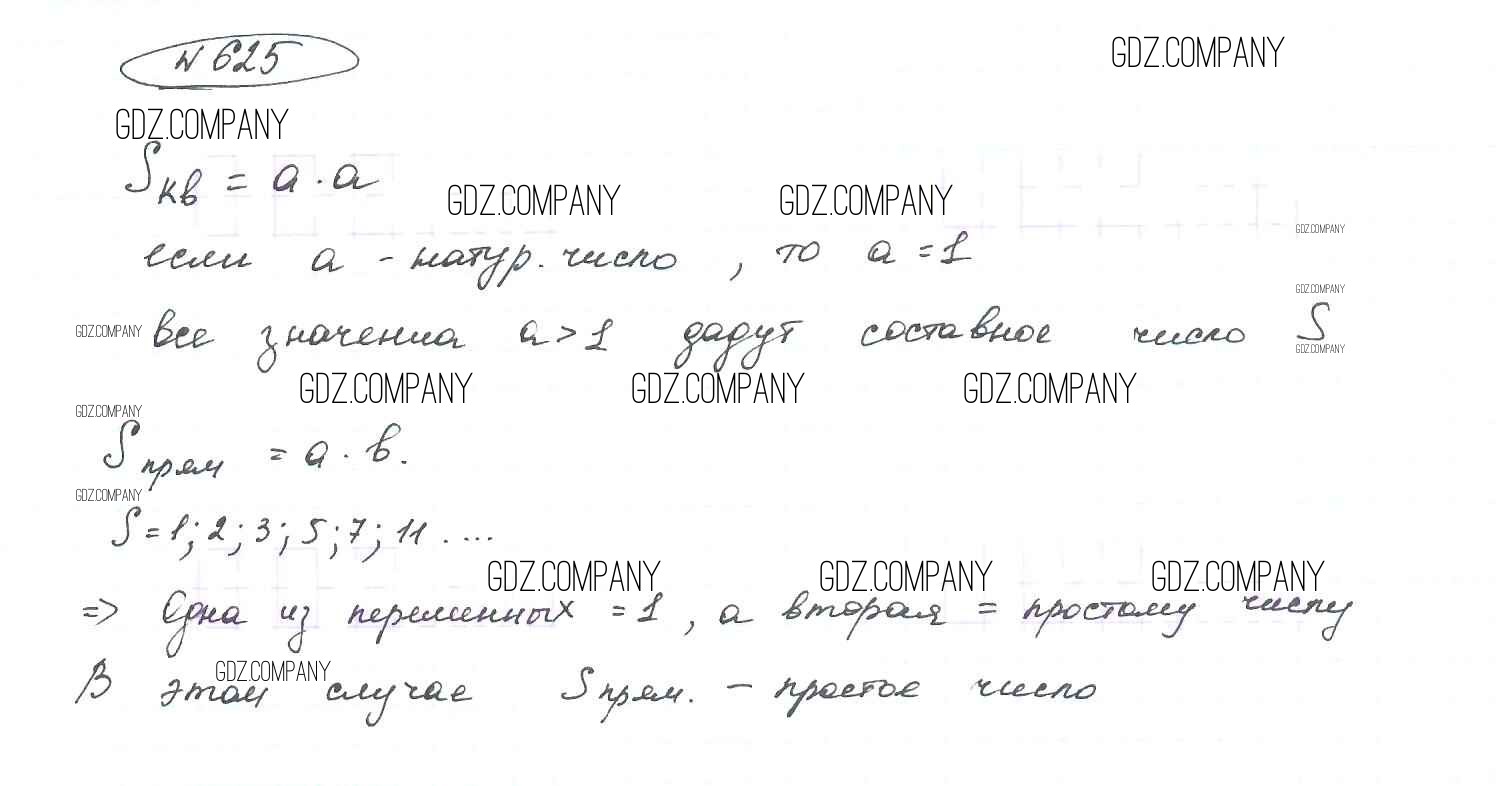 N 625
GDZ.COMPANY
GDZ.COMPANY
Sкв = a · a
GDZ.COMPANY GDZ.COMPANY
GDZ.COMPANY
если a - натур. число, то a = 1
GDZ.COMPANY
GDZ.COMPANY все значения a > 1 дадут составное число S
GDZ.COMPANY
GDZ.COMPANY GDZ.COMPANY GDZ.COMPANY
GDZ.COMPANY
Sпрям = a · в.
GDZ.COMPANY
S = 1; 2; 3; 5; 7; 11 ....
GDZ.COMPANY GDZ.COMPANY GDZ.COMPANY
=> Одна из переменных = 1, а вторая = простому числу
GDZ.COMPANY
В этом случае Sпрям. – простое число